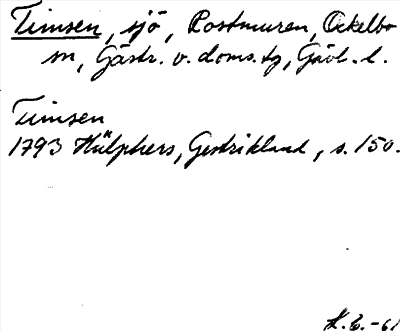 Timsen, sjö, Postmuren, Ockelbo
sn, Gästr. v. doms. tg, Gävl. l.
Timsen
1793 Hülphers, Gestrikland, s. 150.
H. E. -61